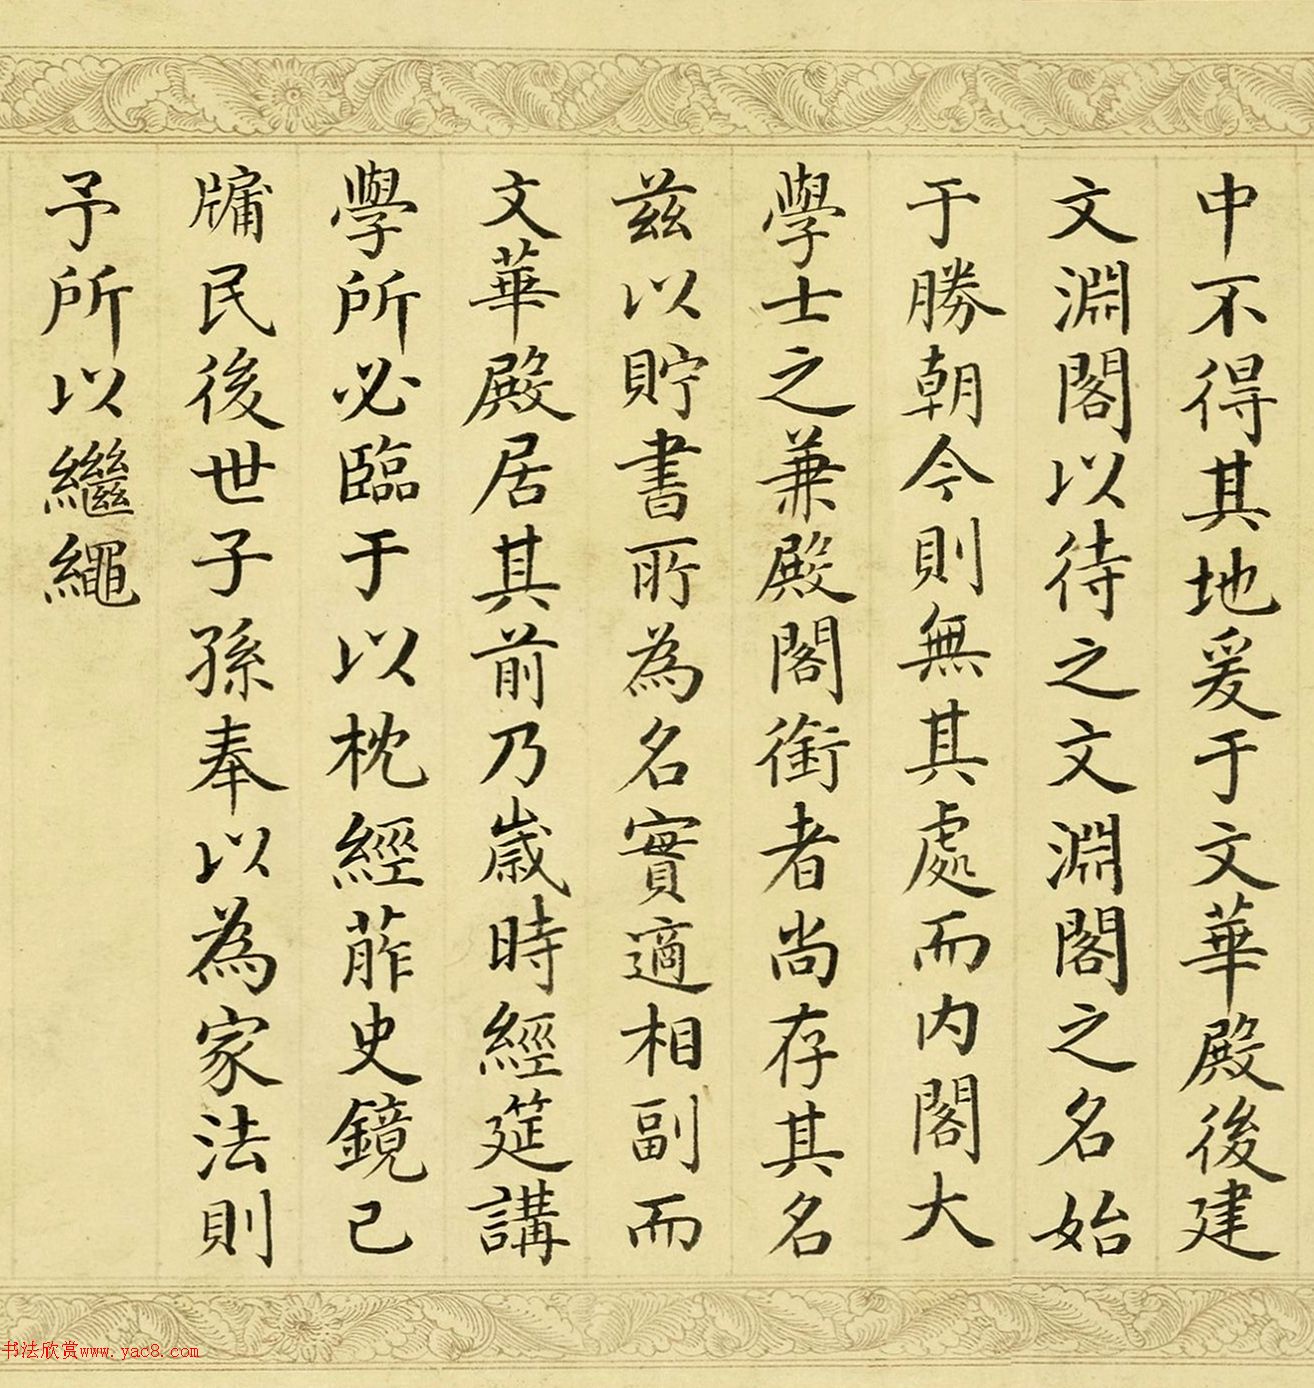 中不得其地爰于文華殿後建
文淵閣以待之文淵閣之名始
于勝朝今則無其處而內閣大
學士之兼殿閣銜者尚存其名
茲以貯書所為名實適相副而
文華殿居其前乃歲時經筵講
學所必臨于以枕經葄史鏡己
牖民後世子孫奉以為家法則
予所以繼繩
书法欣赏www.yac8.com